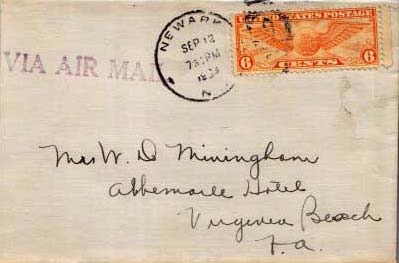 NEWARK
SEP 12
7 30 PM
N
UNITED STATES POSTAGE
6 CENTS 6
VIA AIR MAIL
Mrs W. D. Miningham
Albemarle Hotel
Virginia Beach
VA.